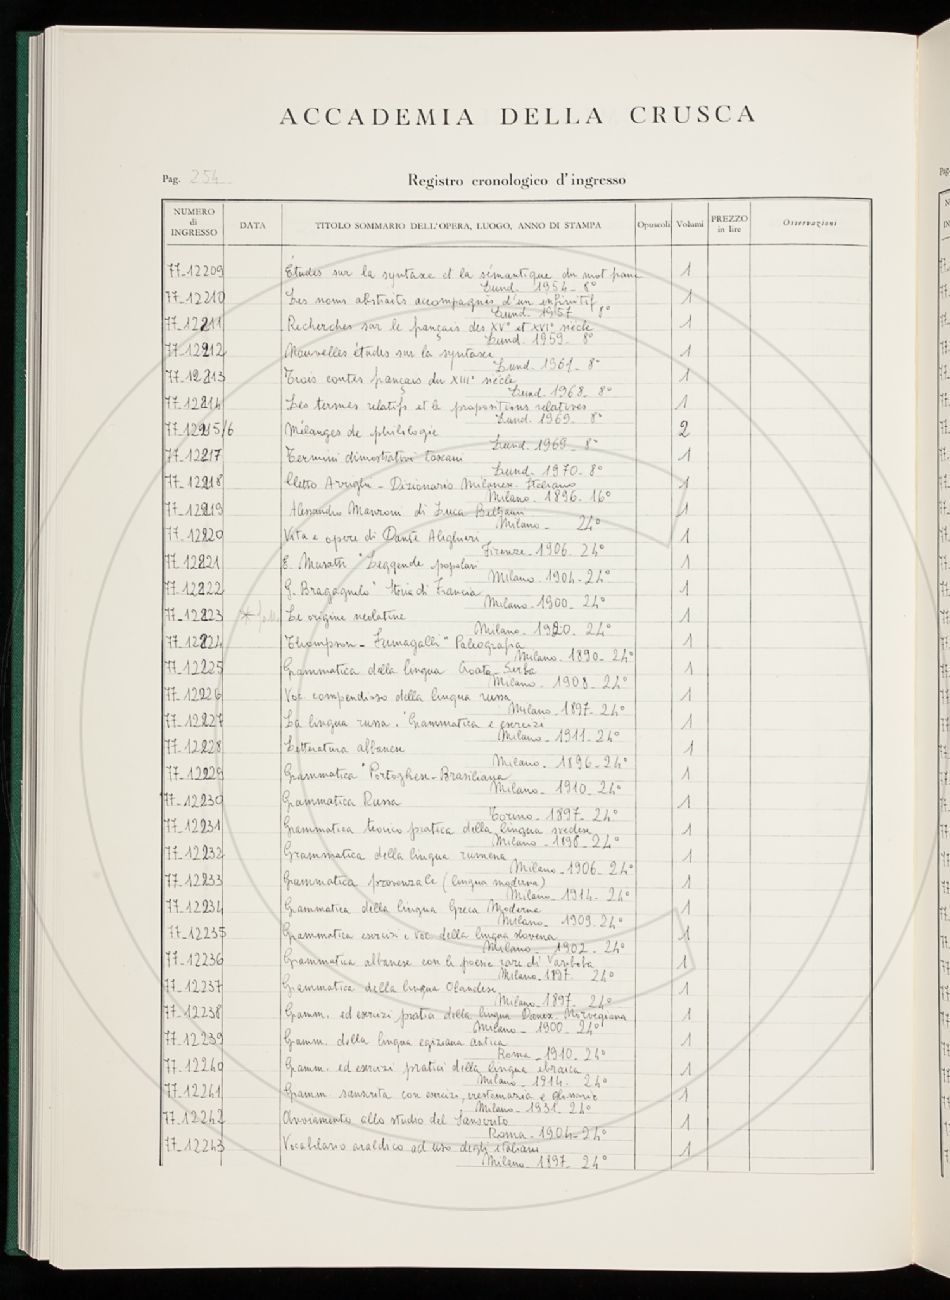 ACCADEMIA DELLA CRUSCA
Pag. 254
Registro cronologico d'ingresso
NUMERO di INGRESSO DATA TITOLO SOMMARIO DELL'OPERA, LUOGO, ANNO DI STAMPA Opuscoli Volumi PREZZO in lire Osservazioni
77-12209 Études sur la syntaxe et la sémantique du mot 1
Lund. 1954- 8°
77-12210 Les noms abstraits accompagnés d'un infinitif 1
Lund. 1957 8°
77-12211 Recherches sur le français des XV° et XVI° siècle 1
Lund. 1959- 8°
77-12212 Nouvelles études sur la syntaxe 1
Lund. 1961- 8°
77-12213 Trois contes français du XIII° siècle 1
Lund. 1968. 8°
77-12214 Les termes relatifs et le propositions relatives 1
Lund. 1969. 8°
77-12215/6 Mélanges de philologie 2
Lund. 1969- 8°
77-12217 Termini dimostrativi toscani 1
Lund. 1970- 8°
77-12218 Cletto Arrighi - Dizionario Milanese-Italiano 1
Milano. 1896. 16°
77-12219 Alessandro Manzoni di Luca Beltrami 1
Milano - 24°
77-12220 Vita e opere di Dante Alighieri 1
Firenze. 1906. 24°
77-12221 E. Musatti "Leggende popolari 1
Milano. 1904-24°
77-12222 G. Bragagnolo "Storia di Francia 1
Milano. 1900- 24°
77-12223 Le origine neolatine 1
Milano- 1920. 24°
77-12224 Thompson - Fumagalli "Paleografia 1
Milano. 1890- 24°
77-12225 Grammatica della lingua Croata-Serba 1
Milano- 1908- 24°
77-12226 Voc. compendioso della lingua russa 1
Milano- 1897-24°
77-12227 La lingua russa. Grammatica e esercizi 1
Milano- 1911-24°
77-12228 Letteratura albanese 1
Milano. 1896-24°
77-12229 Grammatica Portoghese-Brasiliana 1
Milano- 1910- 24°
77-12230 Grammatica Russa 1
Torino- 1897- 24°
77-12231 Grammatica teorico pratica della lingua svedese 1
Milano- 1898-24°
77-12232 Grammatica della lingua rumena 1
Milano- 1906-24°
77-12233 Grammatica provenzale (lingua moderna) 1
Milano- 1914- 24°
77-12234 Grammatica della lingua Greca Moderna 1
Milano- 1909-24°
77-12235 Grammatica esercizi e voc. della lingua slovena 1
Milano- 1902-24°
77-12236 Grammatica albanese con le poesie rare di Variboba 1
Milano. 1897- 24°
77-12237 Grammatica della lingua Olandese 1
Milano- 1897- 24°
77-12238 Gramm. ed esercizi pratici della lingua Danese-Norvegiana 1
Milano- 1900- 24°
77-12239 Gramm. della lingua egiziana antica 1
Roma- 1910. 24°
77-12240 Gramm. ed esercizi pratici della lingua ebraica 1
Milano- 1914- 24°
77-12241 Gramm. sanscrita con esercizi, crestomazia e glossario 1
Milano- 1931- 24°
77-12242 Avviamento allo studio del Sanscrito 1
Roma- 1904-24°
77-12243 Vocabolario araldico ad uso degli italiani 1
Milano 1897- 24°